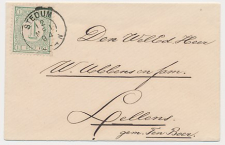 STEDUM
Den WelEd. Heer
W. Wibbens en fam.
Lellens
gem. Ten Boer.